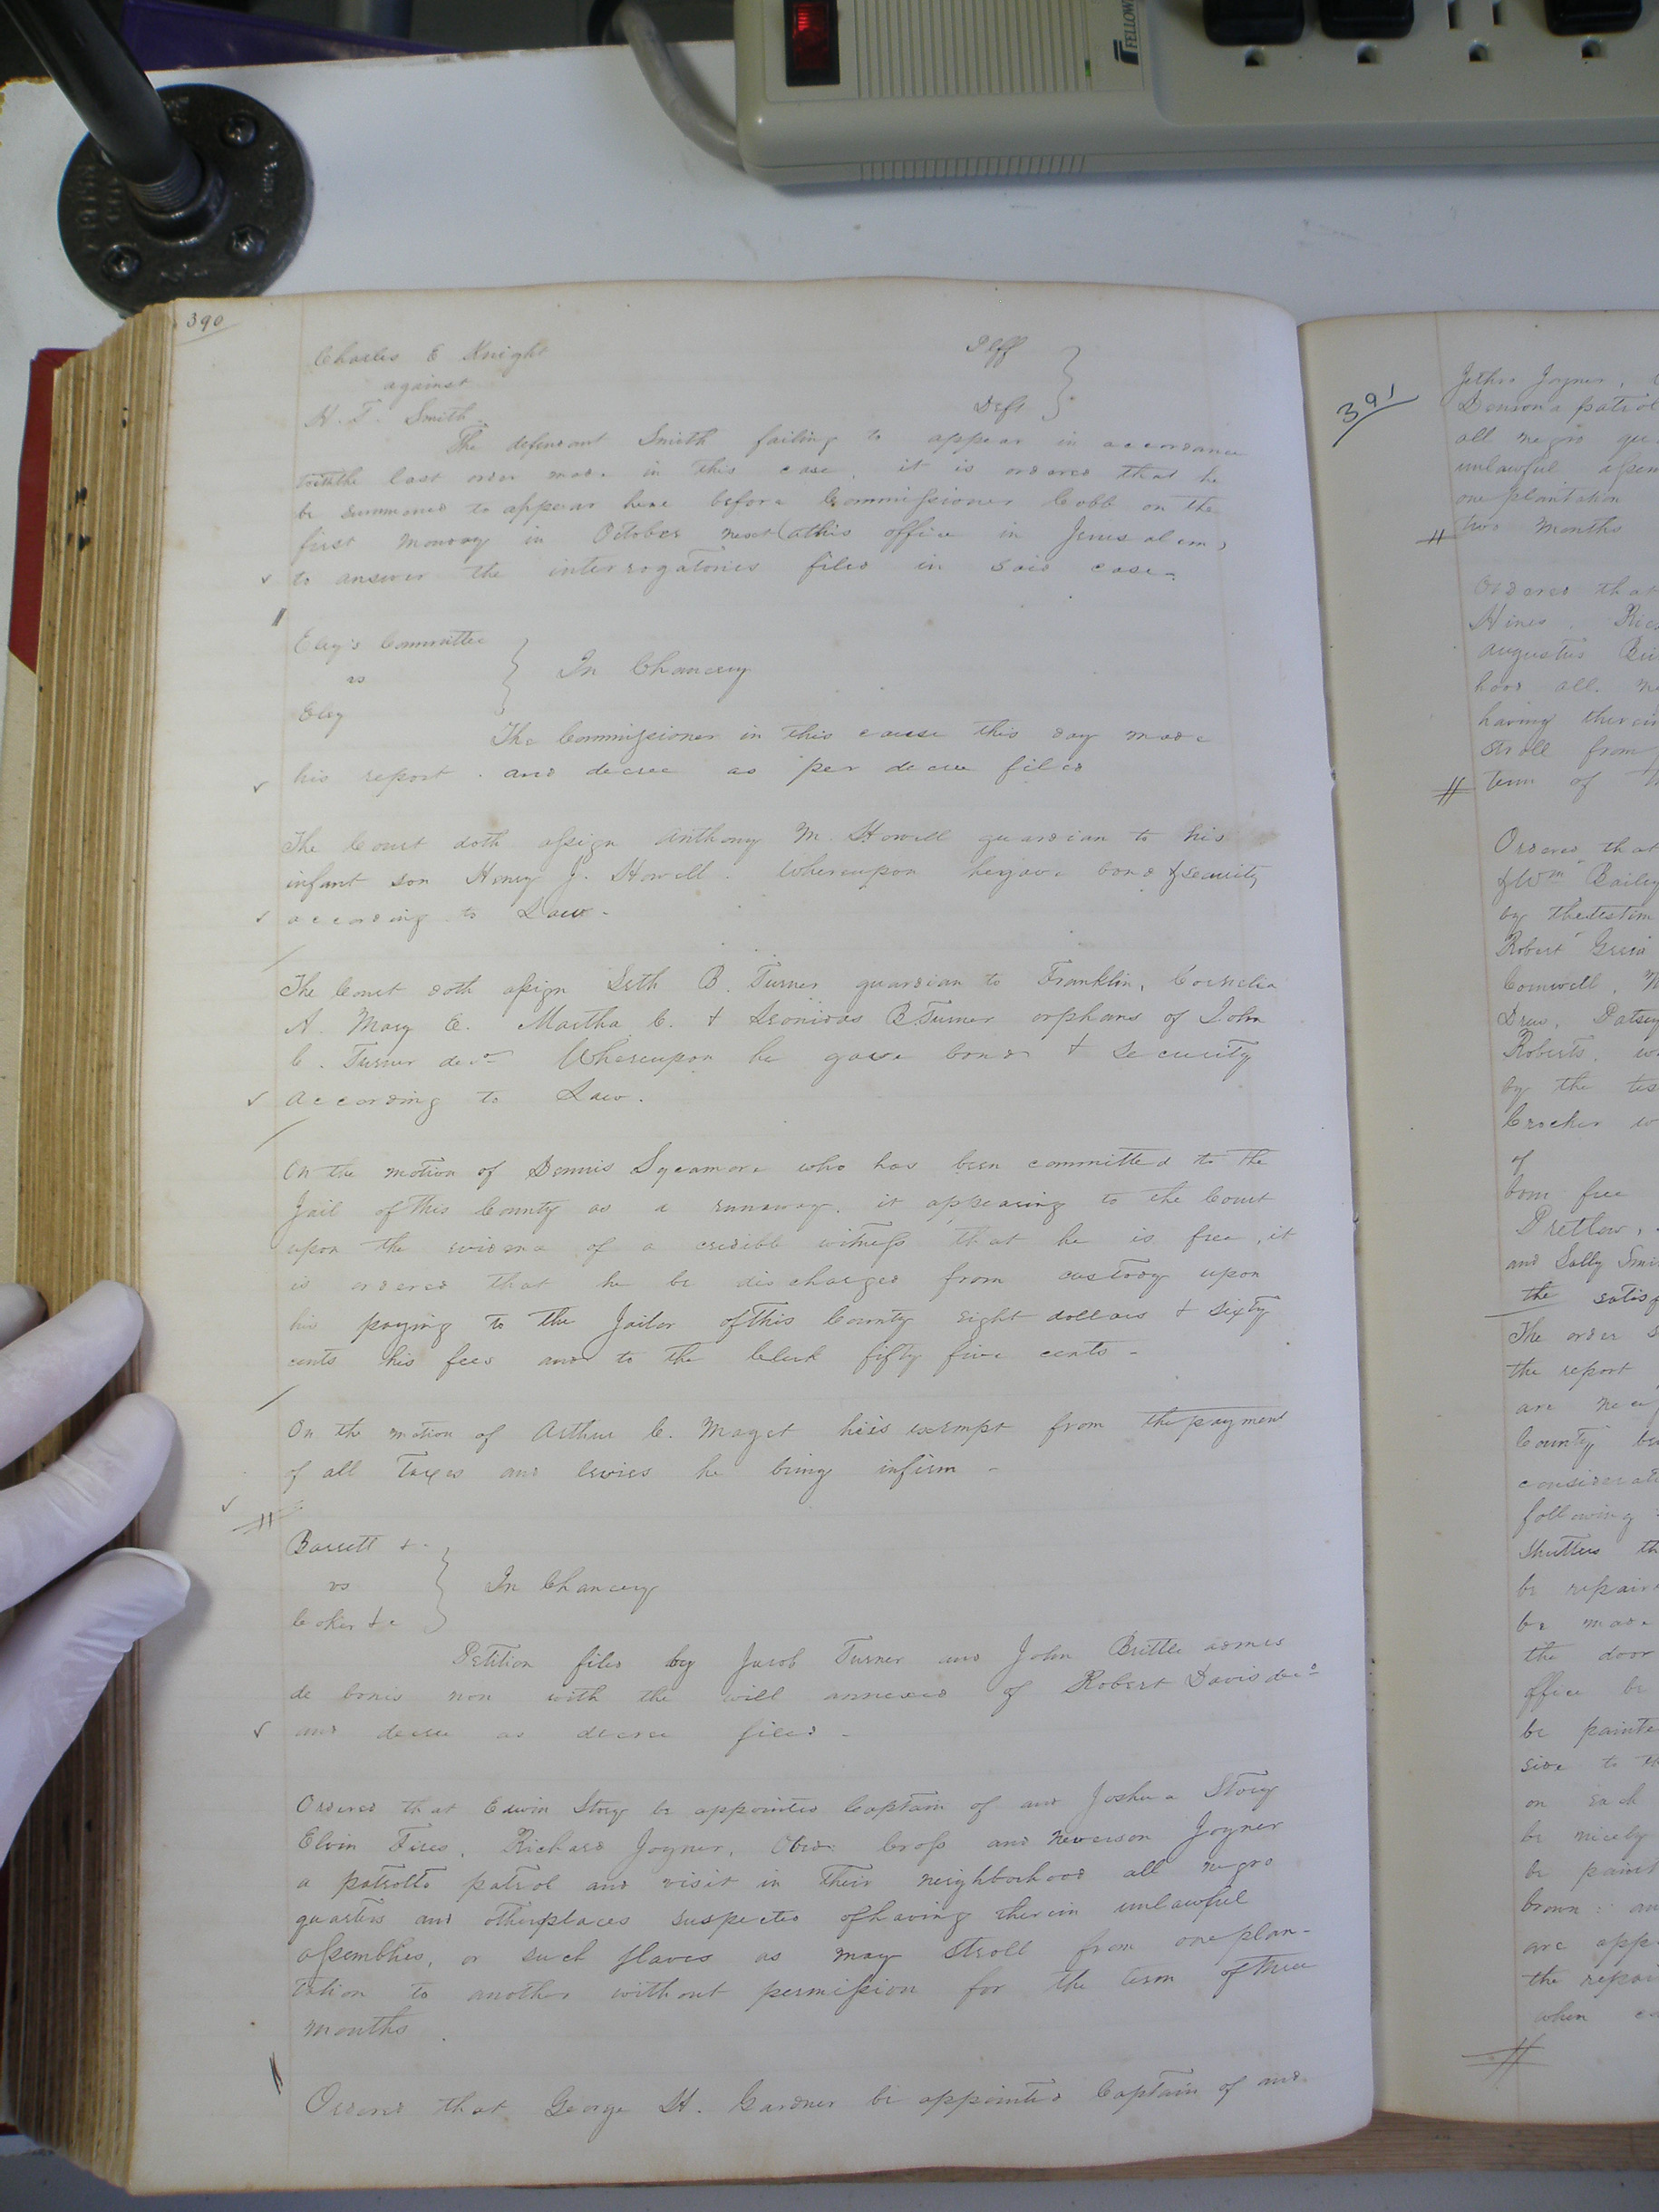 FELLOWES
390
Charles E Knight Plff
against
H. T. Smith Deft
The defendant Smith failing to appear in accordance
with the last order made in this case, it is ordered that he
be summoned to appear here before Commissioner Cobb on the
first Monday in October next (at his office in Jerusalem)
to answer the interrogatories filed in said case -
Eley's Committee
vs In Chancery
Eley
The Commissioner in this cause this day made
his report. and decree as per decree filed
The Court doth assign Anthony M. Howell guardian to his
infant son Henry J. Howell. Whereupon he gave bond & security
according to Law -
The Court doth assign Seth B. Turner guardian to Franklin, Cornelia
A. Mary E. Martha C. & Leonidas B Turner orphans of John
C. Turner decd Whereupon he gave bond & security
according to Law.
On the motion of Dennis Sycamore who has been committed to the
Jail of this County as a runaway, it appearing to the Court
upon the evidence of a credible witness that he is free, it
is ordered that he be discharged from custody upon
his paying to the Jailor of this County eight dollars & sixty
cents his fees and to the Clerk fifty five cents -
On the motion of Arthur C. Maget he is exempt from the payment
of all Taxes and levies he being infirm -
Barrett &
vs In Chancery
Coker &c
Petition filed by Jacob Turner and John Brittle admrs
de bonis non with the will annexed of Robert Davis decd
and decree as decree filed -
Ordered that Edwin Story be appointed Captain of and Joshua Story
Elvin Fires, Richard Joyner, Obed Cross and Neverson Joyner
a patrol to patrol and visit in their neighborhood all negro
quarters and other places suspected of having therein unlawful
assemblies, or such slaves as may stroll from one plan-
tation to another without permission for the term of three
months.
Ordered that George H. Gardner be appointed Captain of and
391
Jethro Joyner,
Denson a patrol
all negro
unlawful
one plantation
two months
Ordered that
Hines,
Augustus
hood all
having therein
stroll from
term of
Ordered that
& Wm Bailey
by the
Robert
Cornwell,
Drew, Patsey
Roberts,
by the
Crocker
of
born free
Pretlow,
and Sally
the
The order
the report
are
County
following
Shutters
be
be made
the door
office be
be
side to
on each
be nicely
be
brown
are
the
when